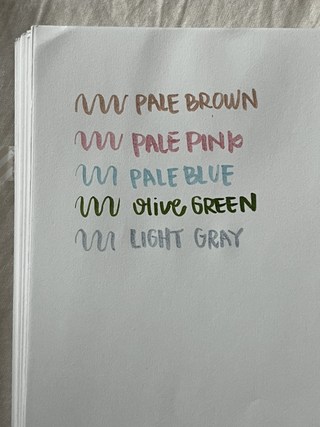 PALE BROWN
PALE PINK
PALE BLUE
olive GREEN
LIGHT GRAY